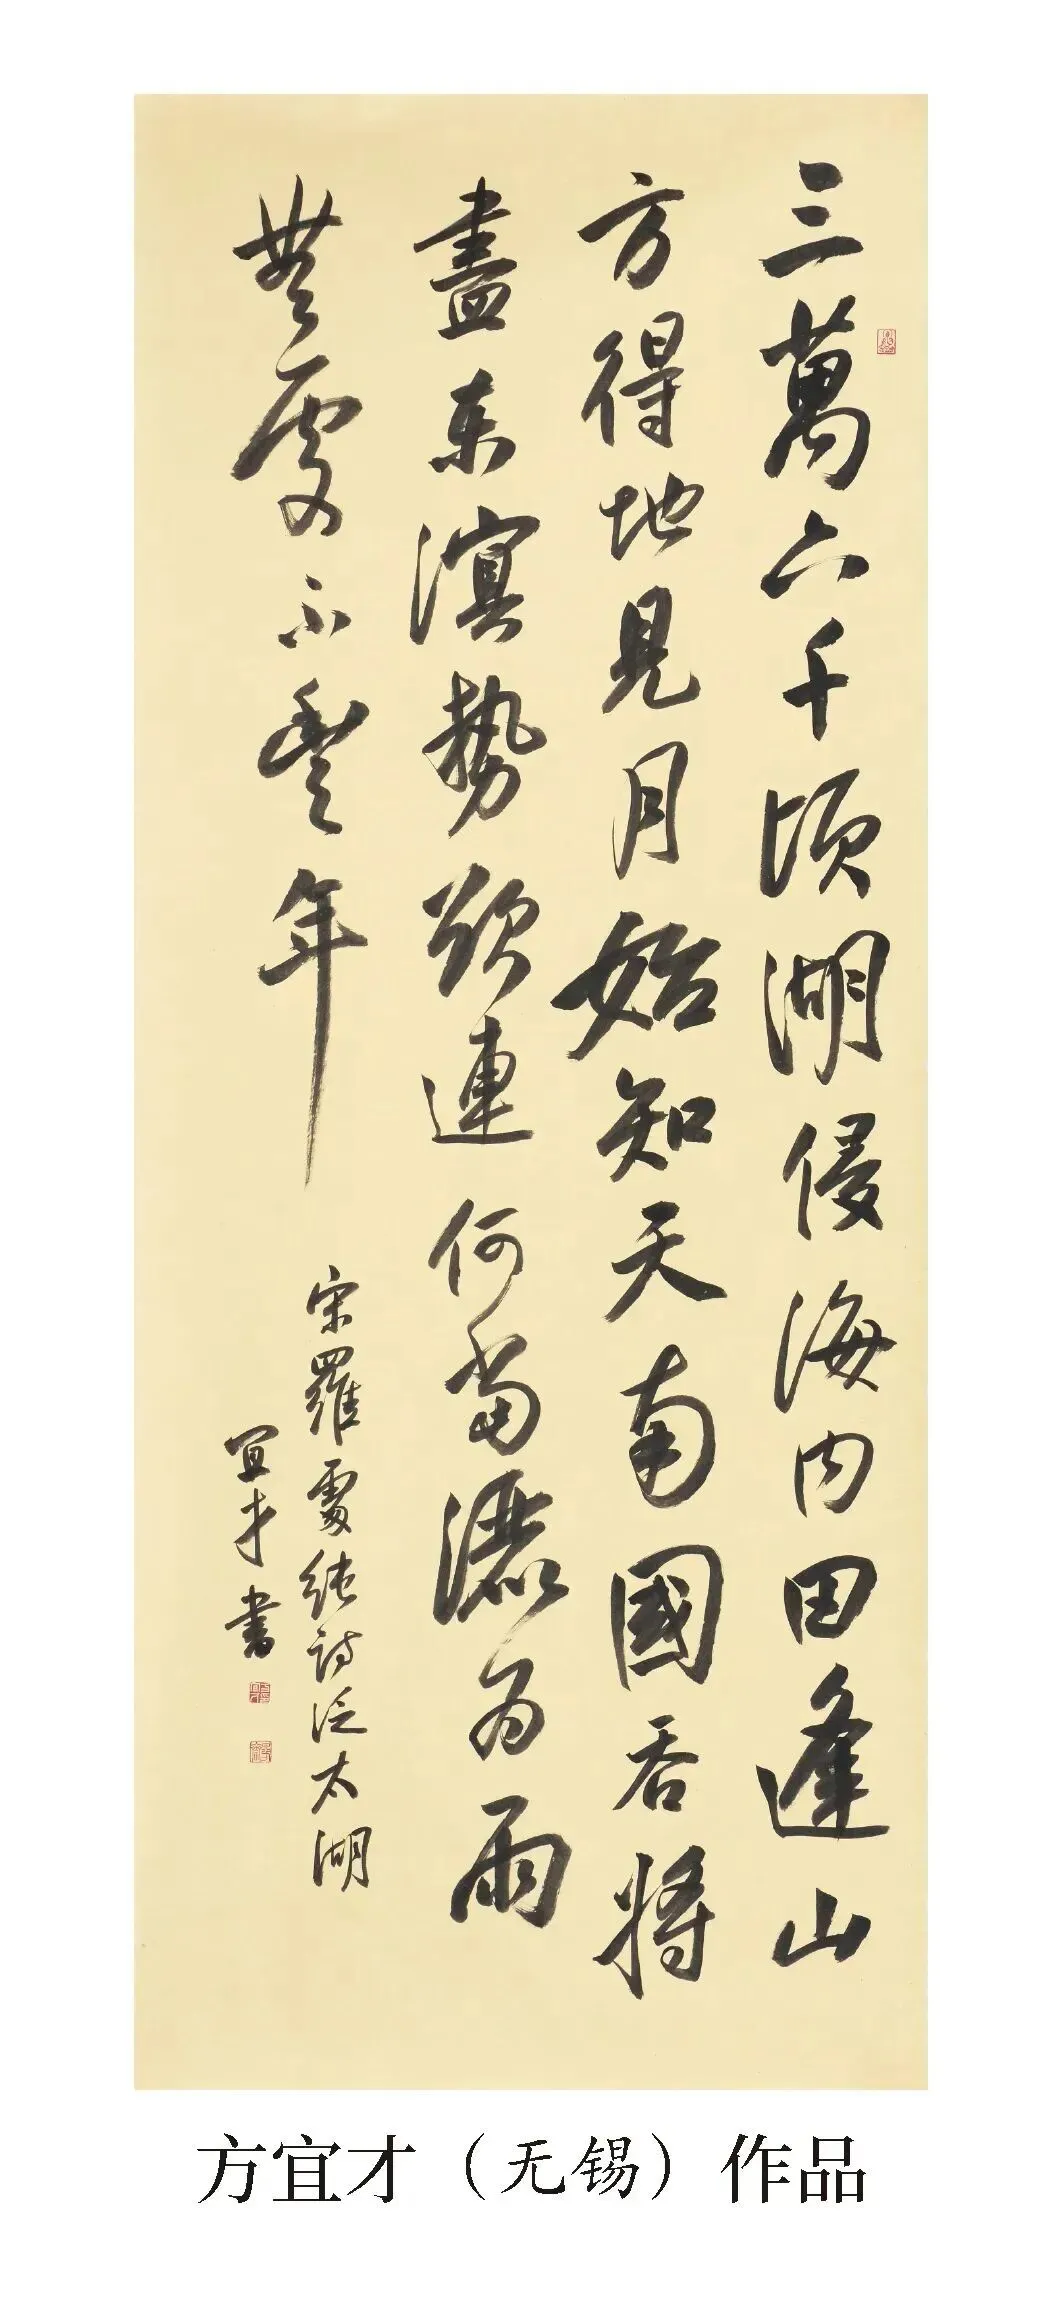 三萬六千頃湖侵海內田逢山
方得地見月始知天南國吞將
盡東溟勢欲連何當灑為雨
無處不豐年
宋羅處純詩泛太湖
宜才書
方宜才（无锡）作品